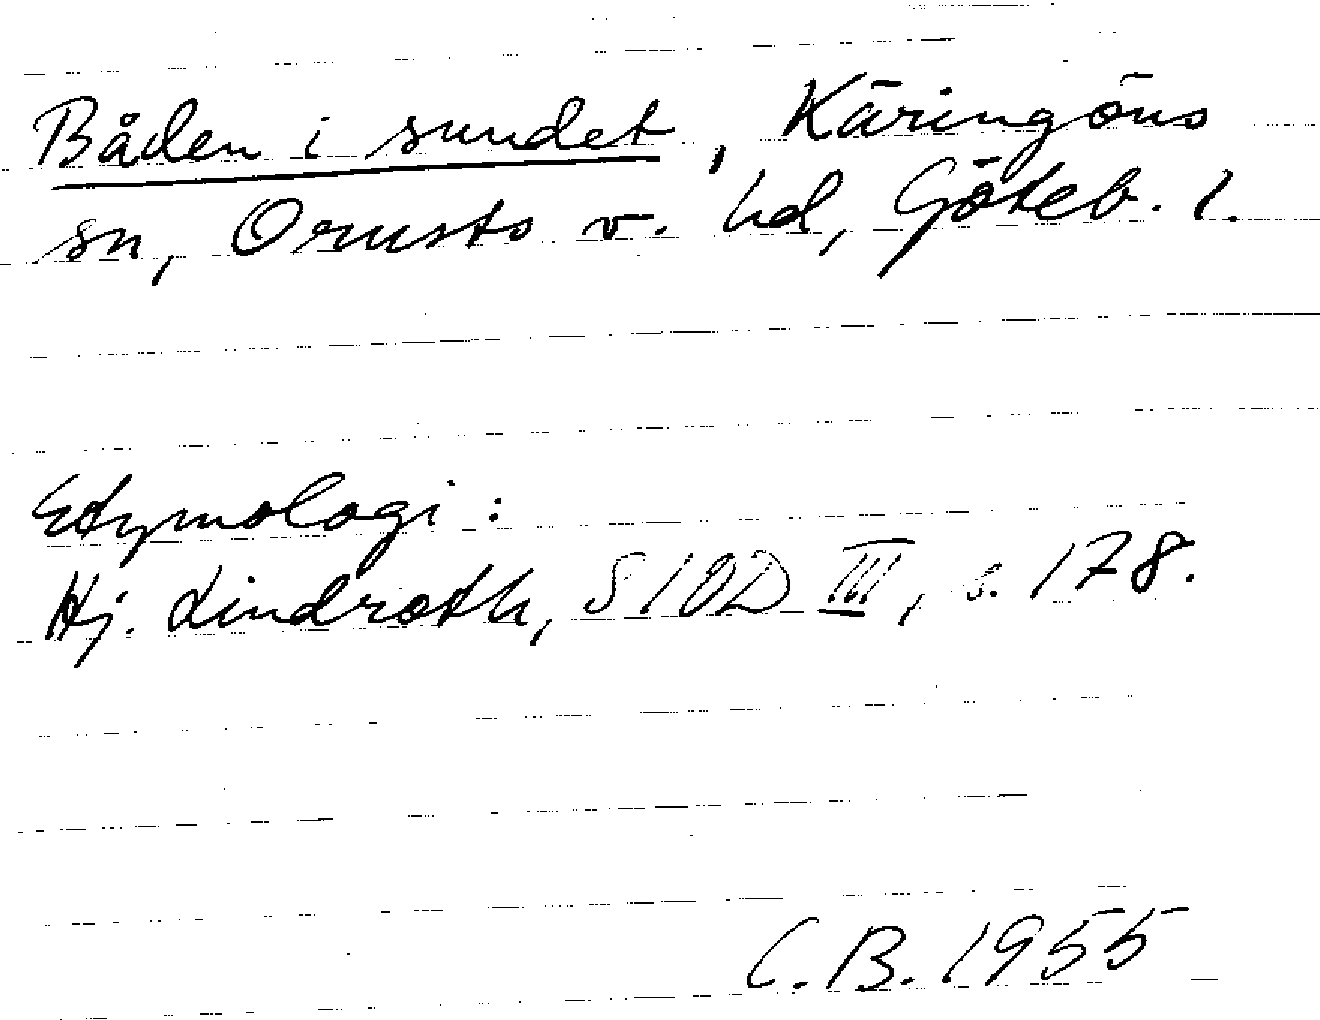 Båden i sundet, Käringöns
sn, Orusts v. hd, Göteb. l.
Etymologi:
Hj. Lindroth, SIOD III, s. 178.
C.B. 1955